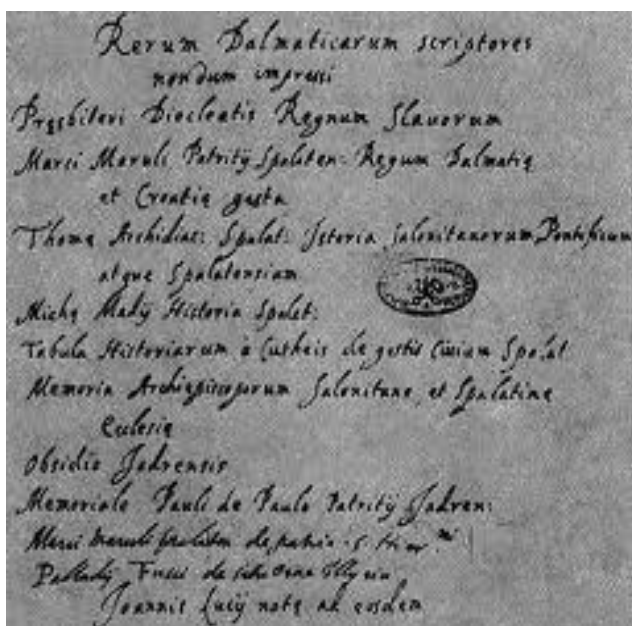 Rerum Dalmaticarum scriptores
nondum impressi
Pręsbiteri Diocleatis Regnum Slavorum
Marci Maruli Patritij Spalaten: Regum Dalmatię
et Croatię gesta
Thomę Archidiac: Spalat: Istoria Salonitanorum Pontificum
atque Spalatensium
Michę Madij Historia Spalat:
Tabula Historiarum à Cutheis de gestis Civium Spalat
Memoria Archiepiscoporum Salonitanę et Spalatinę
Eclesię
Obsidio Jadrensis
Memoriale Pauli de Paulo Patritij Jadren:
Marci Maruli Spalaten de patria S.
Palladij Fusci de situ orae Illyrici
Joannis Lucij notę ad eosdem